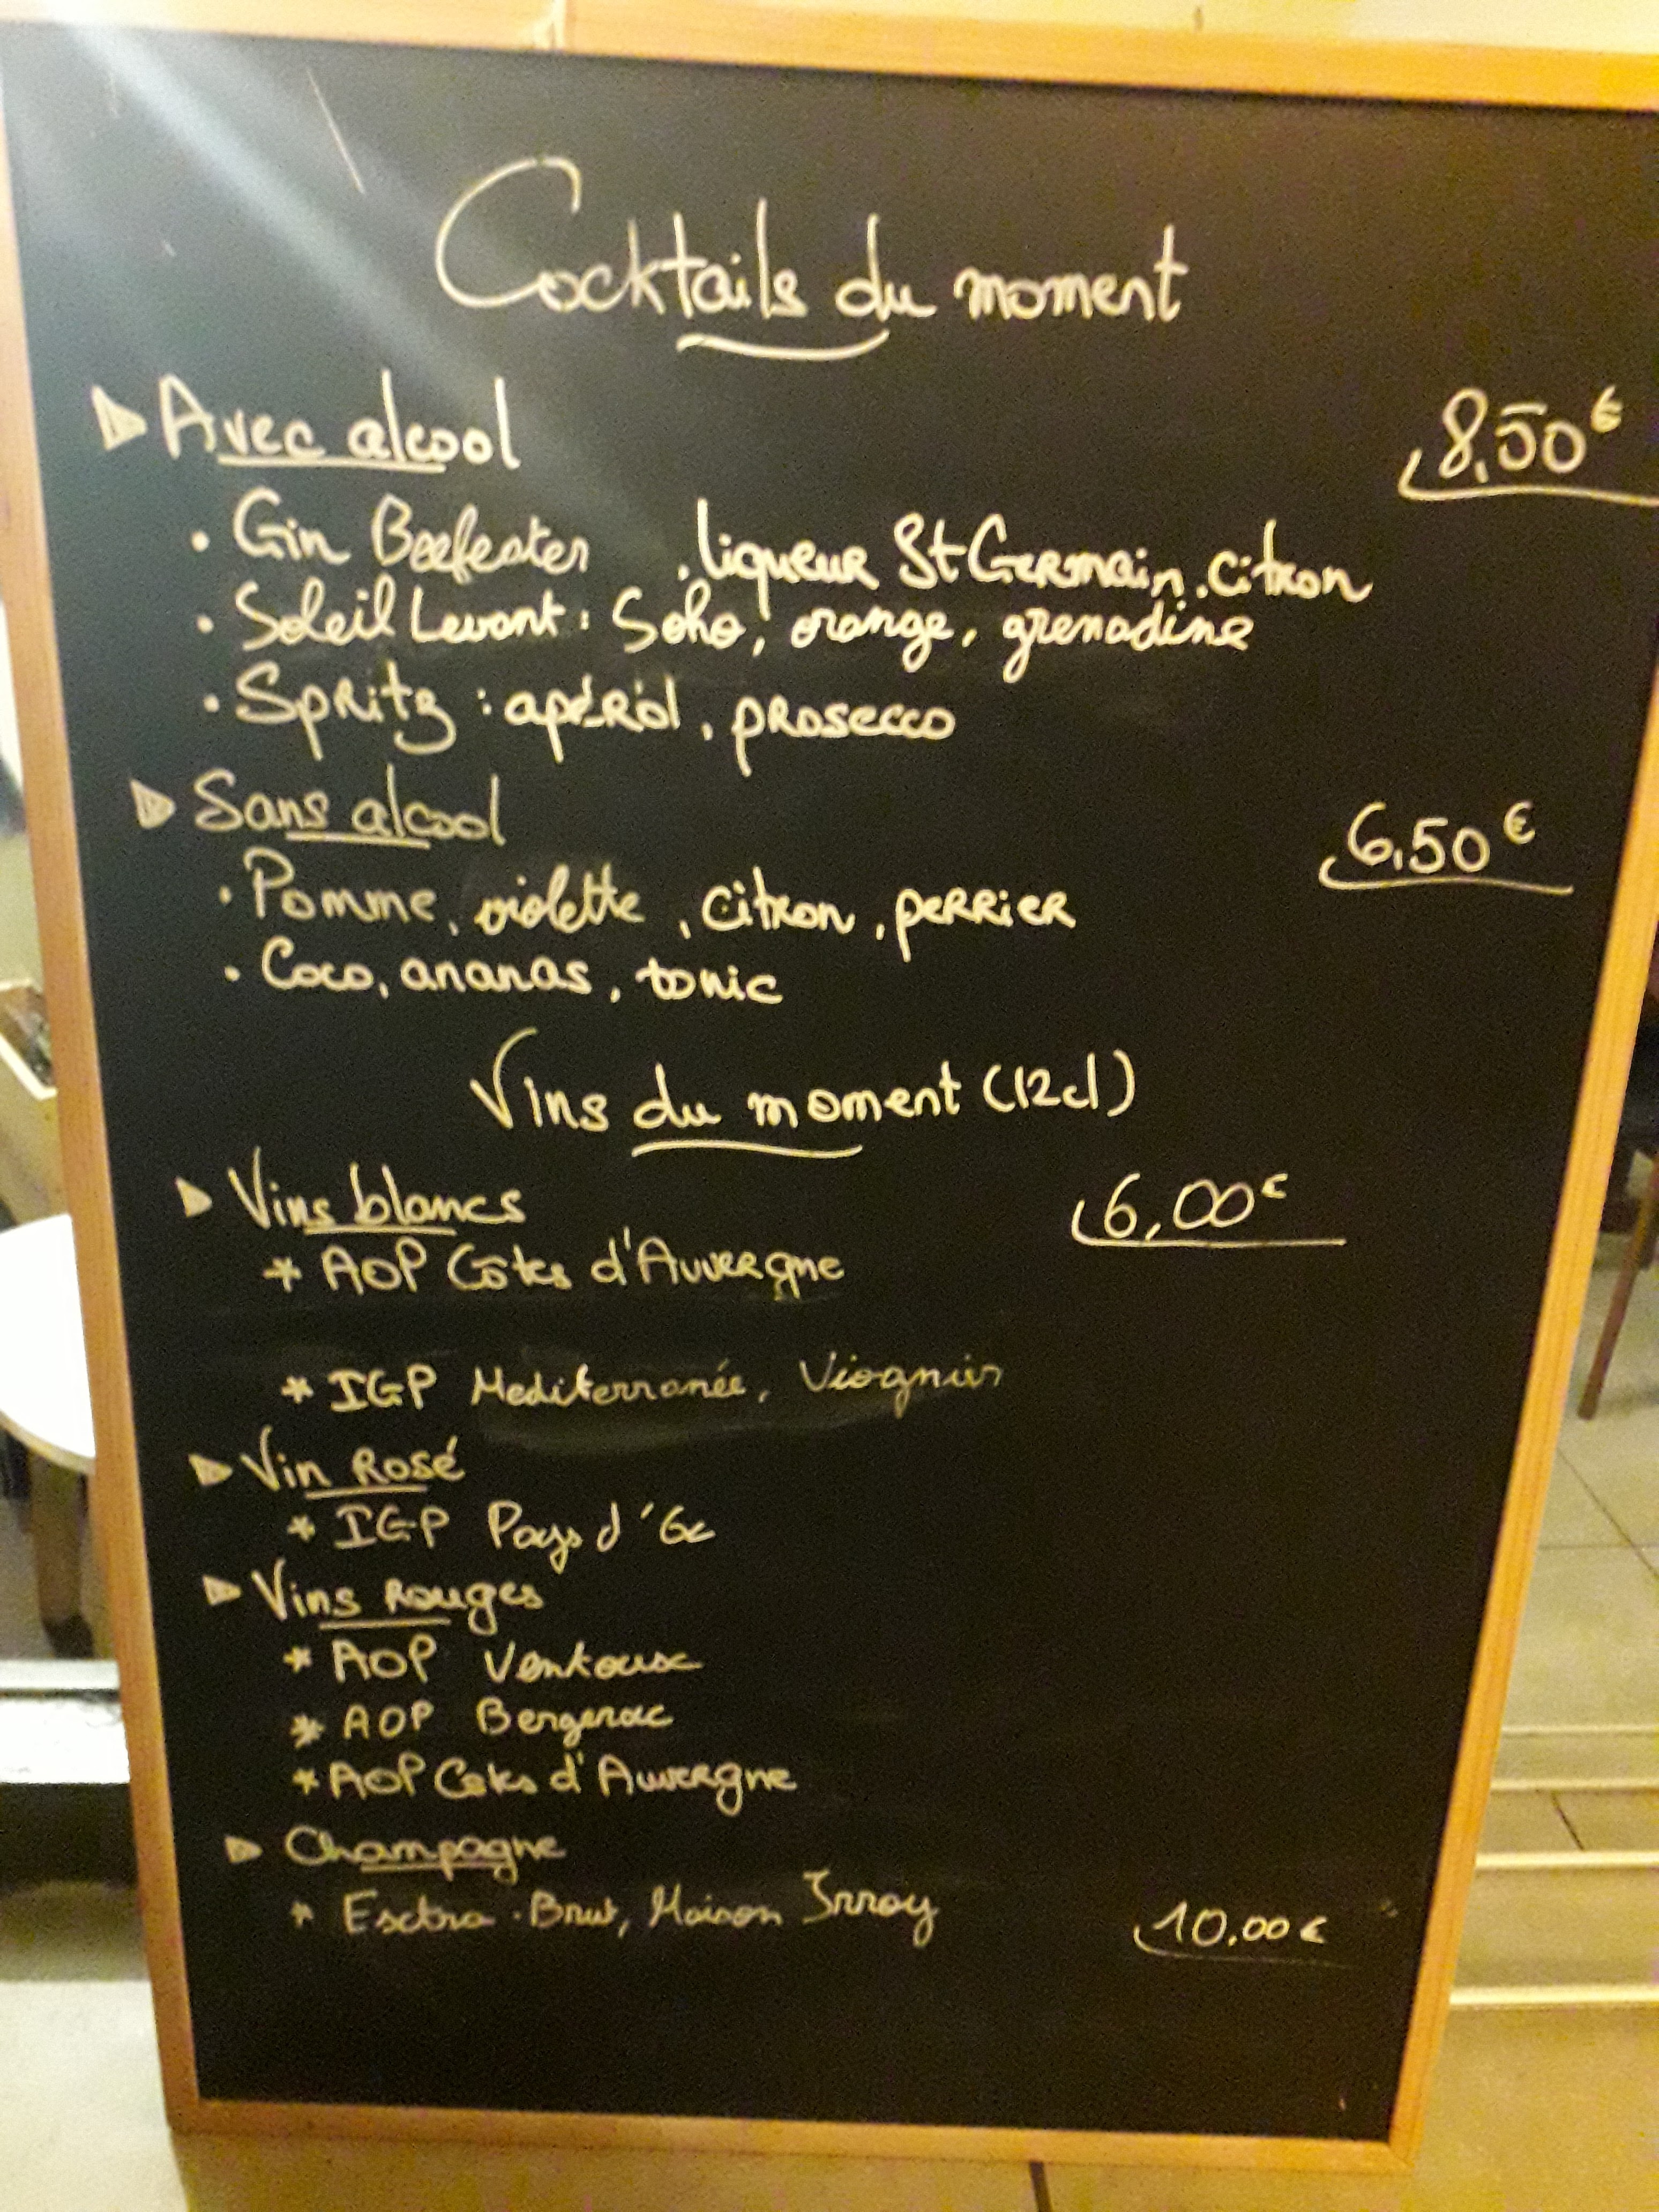 Cocktails du moment
Avec alcool 8,50€
. Gin Beefeater , liqueur St Germain, citron
. Soleil Levant : Soho, orange, grenadine
. Spritz : apérol, prosecco
Sans alcool 6,50€
. Pomme, violette, citron, perrier
. Coco, ananas, tonic
Vins du moment (12cl)
Vins blancs 6,00€
* AOP Côtes d'Auvergne
* IGP Mediterranée, Viognier
Vin Rosé
* IGP Pays d'
Vins Rouges
* AOP Ventoux
* AOP Bergerac
* AOP Cotes d'Auvergne
Champagne
* Extra-Brut, Maison Irroy 10,00€